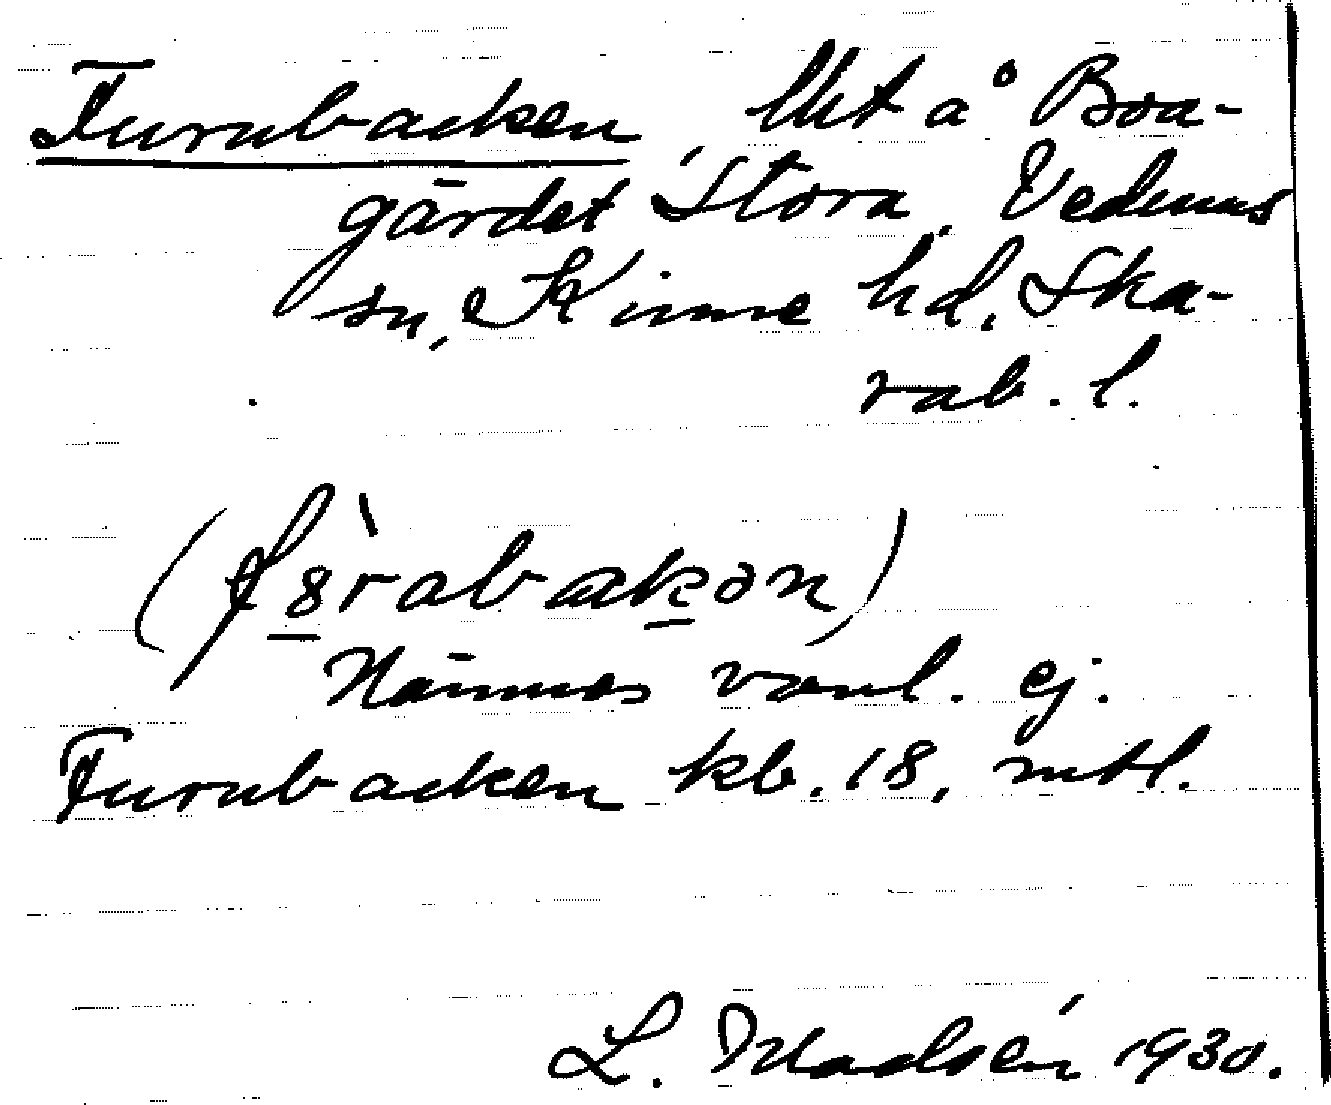 Furubacken, lht å Boa-
gärdet Stora, Vedums
sn, Kinne hd, Ska-
rab. l.
(f8̠̀rabak̠ən)
Nämnes vanl. ej.
Furubacken kb. 18, mtl.
L. Madsén 1930.